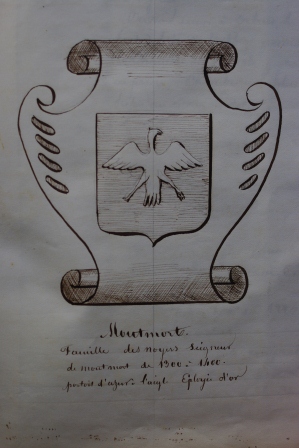 Montmort.
famille des noyers Seigneur
de montmort de 1300 - 1400.
portoit d'azur à l'aigle Eployée d'or